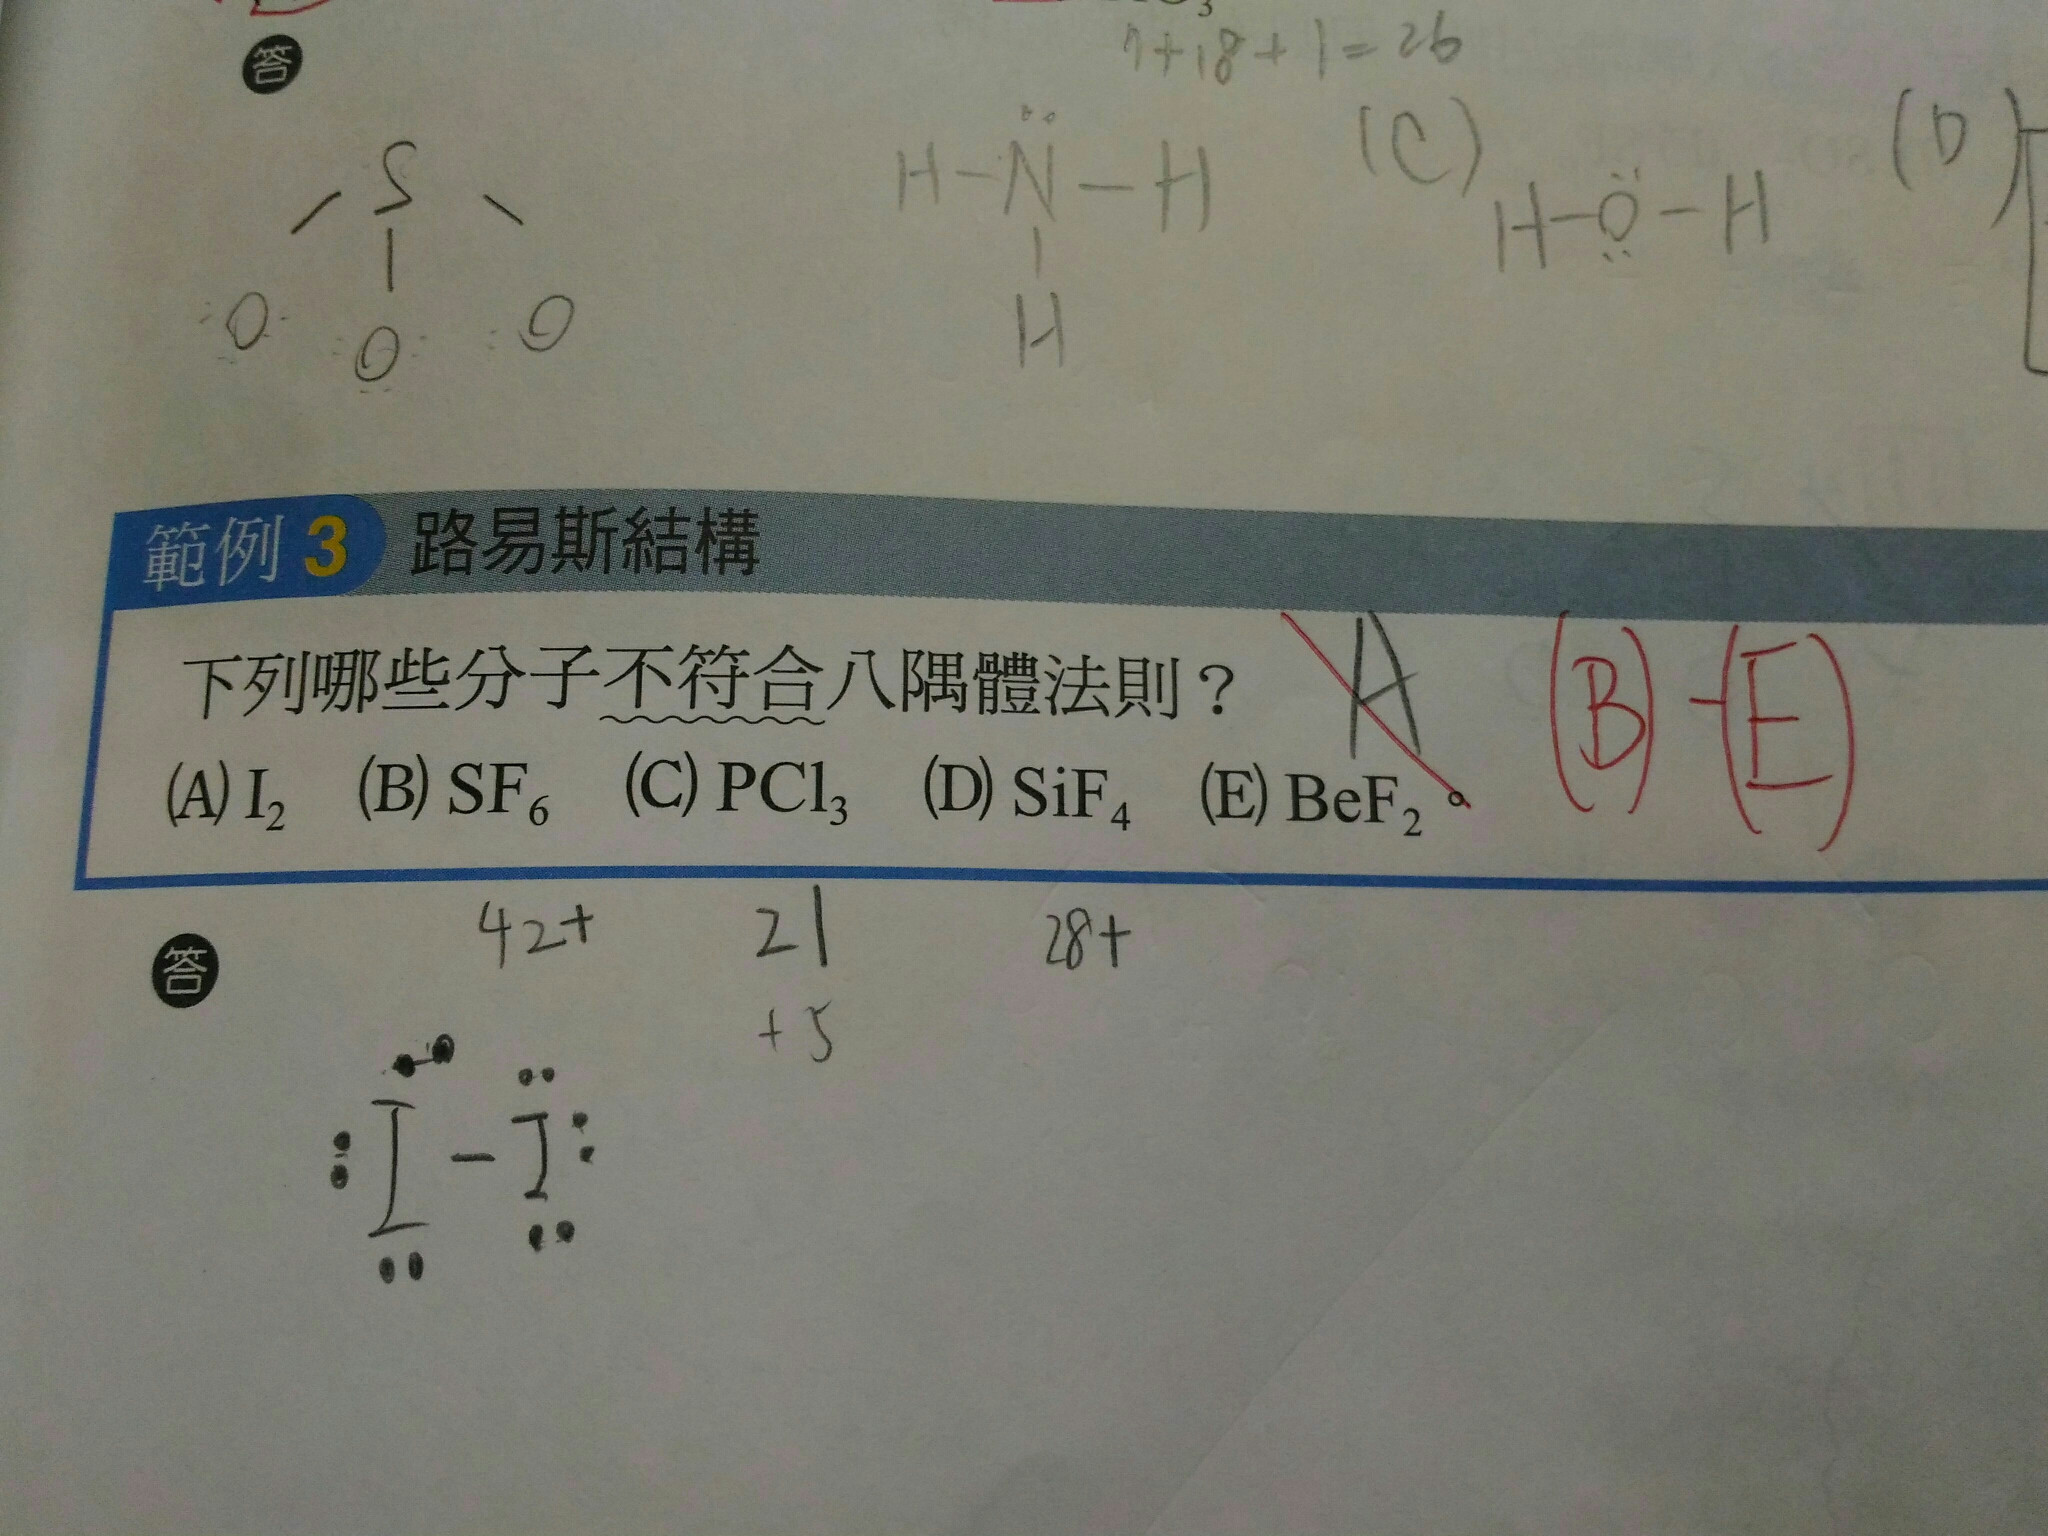 答
7+18+1=26
S
O O O
H-N-H
H
(C)
H-O-H
(D)
範例 3 路易斯結構
下列哪些分子不符合八隅體法則？ A (B)-(E)
(A) I₂ (B) SF₆ (C) PCl₃ (D) SiF₄ (E) BeF₂。
42+ 21 28+
+5
答
I-I